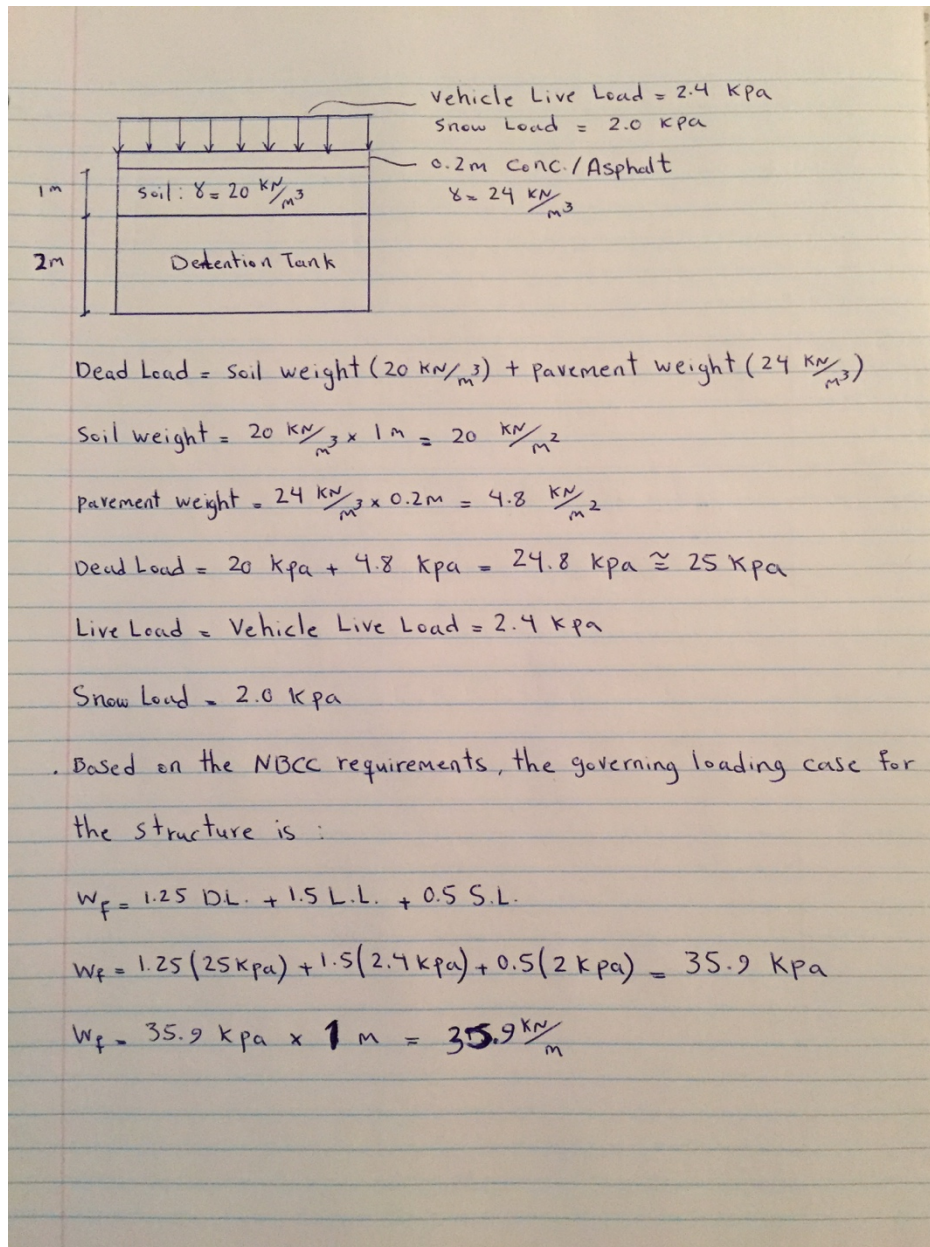 Vehicle Live Load = 2.4 Kpa
Snow Load = 2.0 Kpa
0.2m Conc./Asphalt
γ = 24 KN/m³
1m
Soil: γ = 20 KN/m³
2m
Detention Tank
Dead Load = Soil weight (20 KN/m³) + pavement weight (24 KN/m³)
Soil weight = 20 KN/m³ × 1 m = 20 KN/m²
pavement weight = 24 KN/m³ × 0.2m = 4.8 KN/m²
Dead Load = 20 kpa + 4.8 kpa = 24.8 kpa ≅ 25 Kpa
Live Load = Vehicle Live Load = 2.4 kpa
Snow Load = 2.0 kpa
. Based on the NBCC requirements, the governing loading case for
the structure is :
Wf = 1.25 D.L. + 1.5 L.L. + 0.5 S.L.
Wf = 1.25 (25kpa) + 1.5(2.4kpa) + 0.5(2kpa) = 35.9 Kpa
Wf = 35.9 kpa × 1 m = 35.9 KN/m